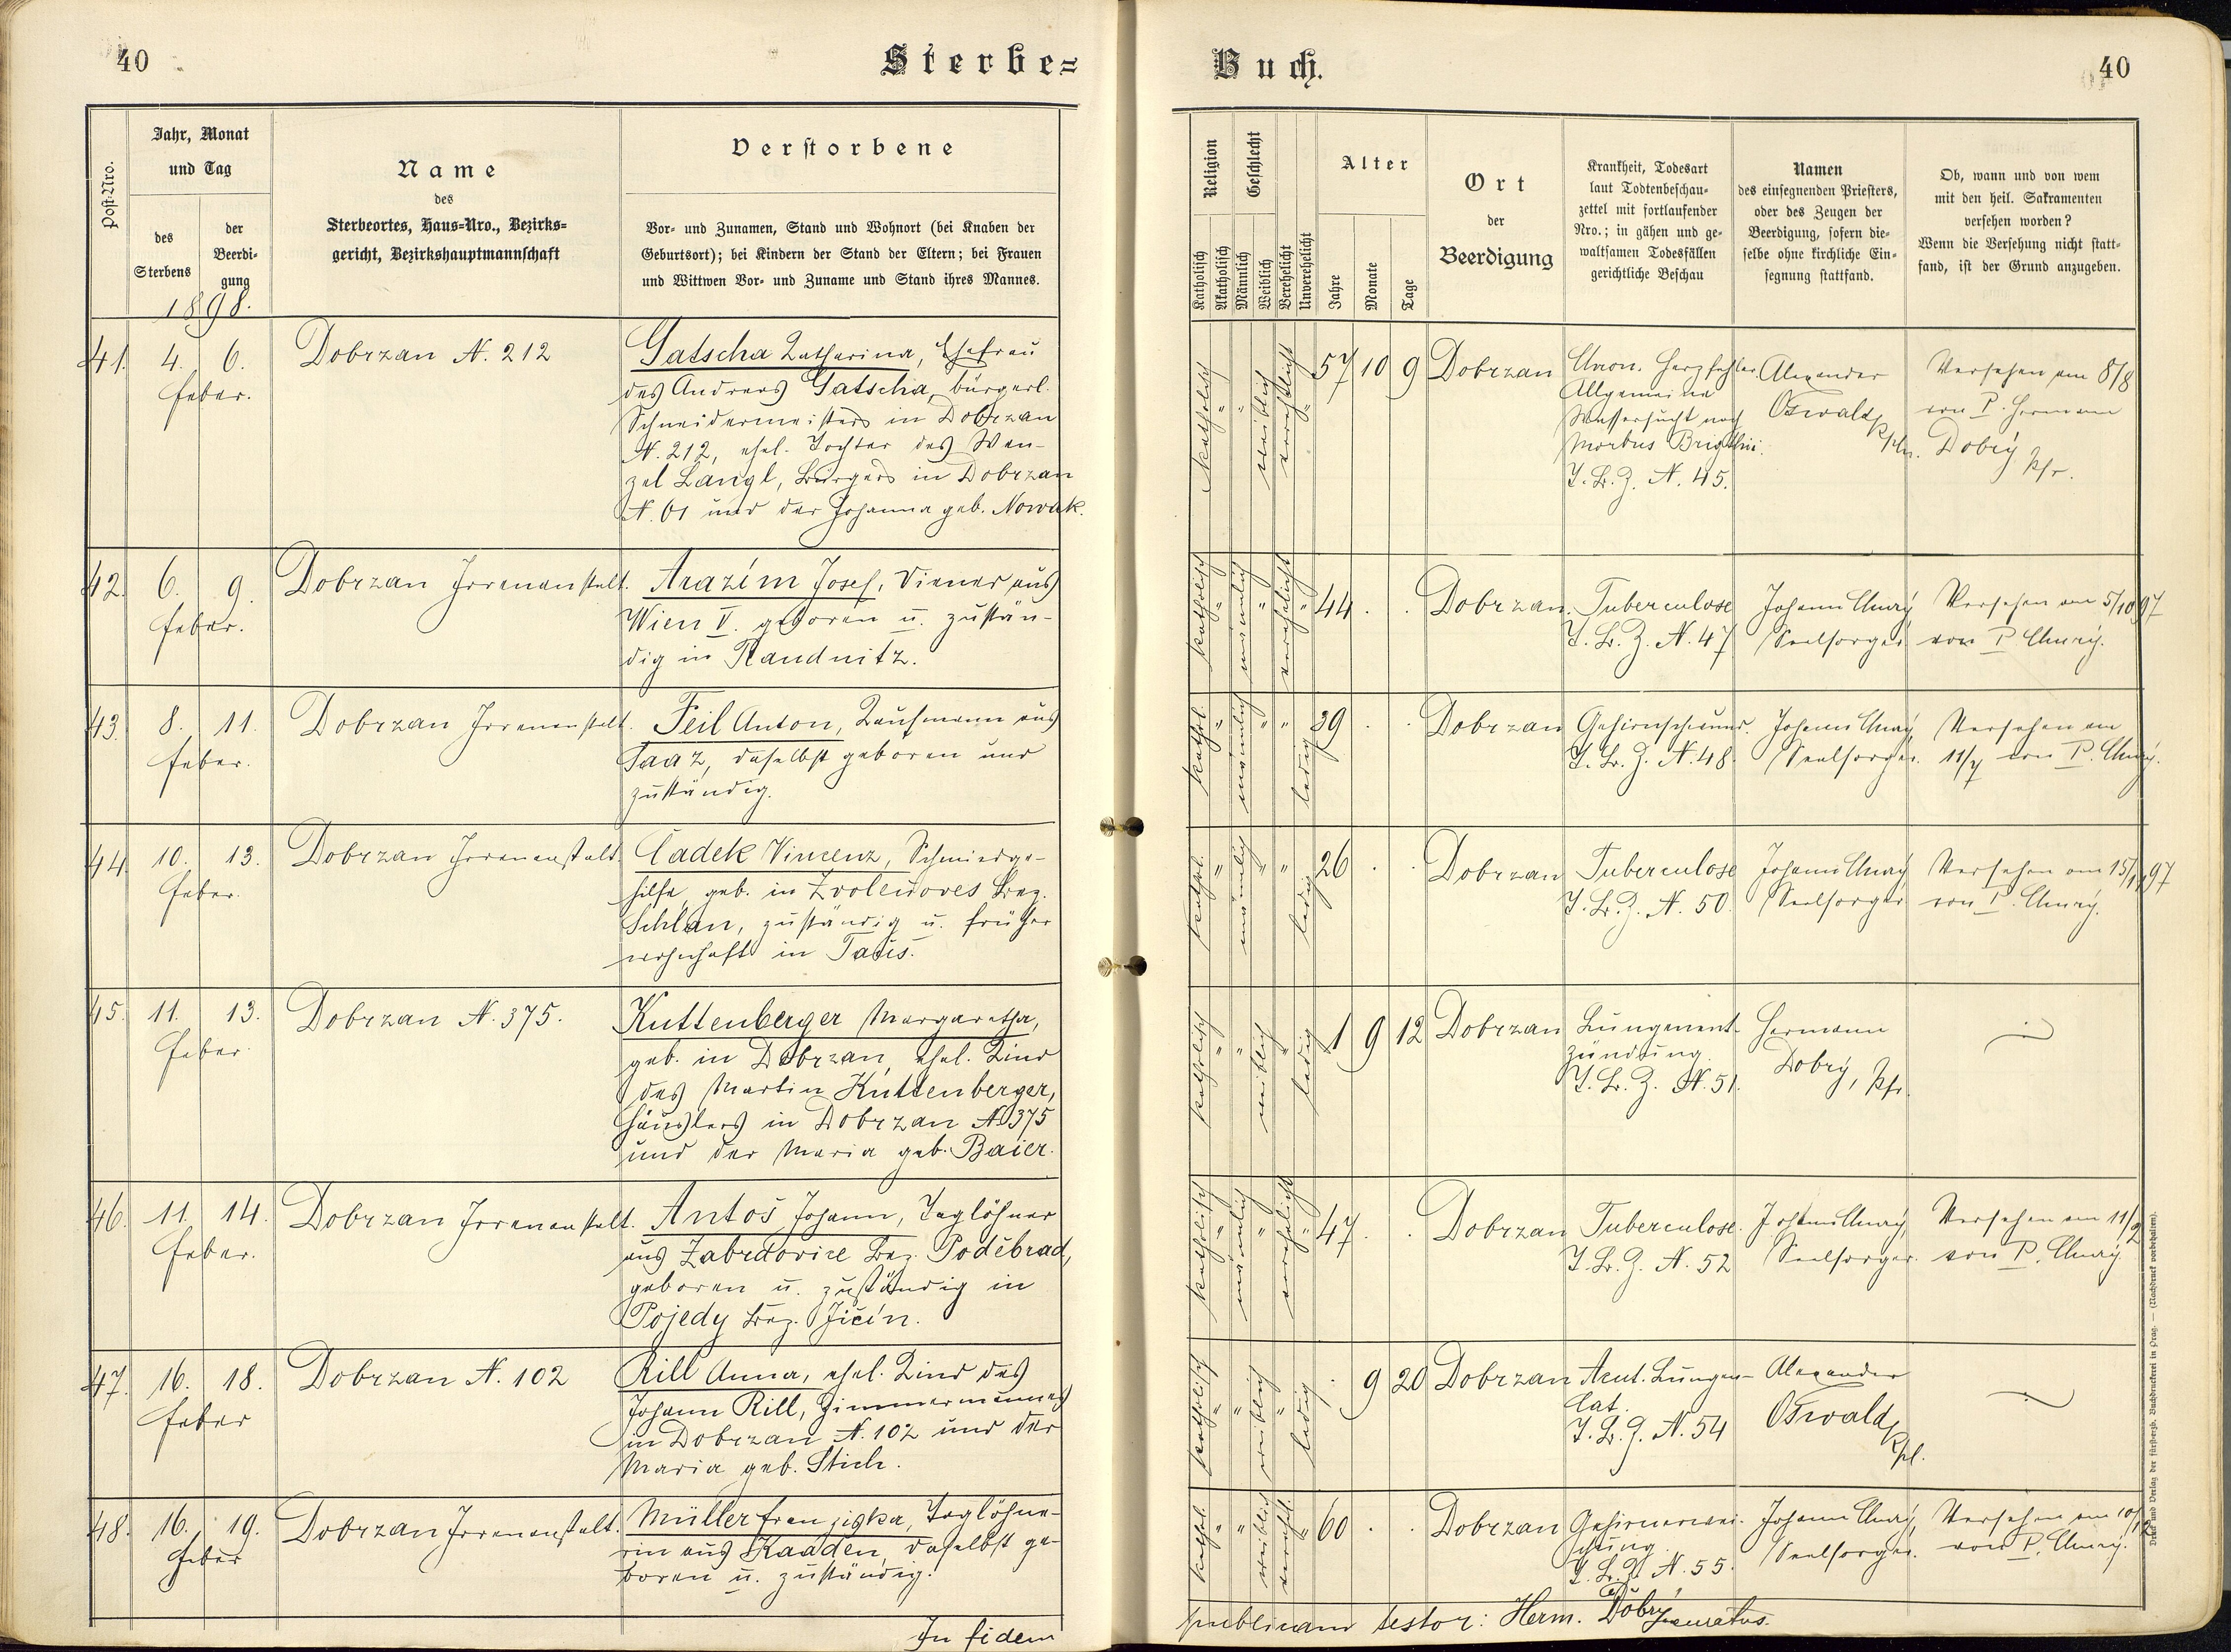 40
Sterbe=
Buch.
40
Post-Nro.
Jahr, Monat
und Tag
des
Sterbens
der
Beerdi-
gung
1898.
Name
des
Sterbeortes, Haus=Nro., Bezirks=
gericht, Bezirkshauptmannschaft
Verstorbene
Vor- und Zunamen, Stand und Wohnort (bei Knaben der
Geburtsort); bei Kindern der Stand der Eltern; bei Frauen
und Wittwen Vor- und Zuname und Stand ihres Mannes.
Religion
Katholisch
Akatholisch
Geschlecht
Männlich
Weiblich
Verehelicht
Unverehelicht
Alter
Jahre
Monate
Tage
Ort
der
Beerdigung
Krankheit, Todesart
laut Todtenbeschau-
zettel mit fortlaufender
Nro.; in gähen und ge-
waltsamen Todesfällen
gerichtliche Beschau
Namen
des einsegnenden Priesters,
oder des Zeugen der
Beerdigung, sofern die-
selbe ohne kirchliche Ein-
segnung stattfand.
Ob, wann und von wem
mit den heil. Sakramenten
versehen worden?
Wenn die Versehung nicht statt-
fand, ist der Grund anzugeben.
41. 4. 6.
Feber.
Dobrzan N. 212
Gatscha Katharina, Ehefrau
des Andreas Gatscha, bürgerl.
Schneidermeisters in Dobrzan
N. 212, ehel. Tochter des Wen-
zel Langl, Bürgers in Dobrzan
N. 61 und der Johanna geb. Nowak.
katholisch " " weiblich verehelicht "
57 10 9
Dobrzan
Chron. Herzfehler
Allgemeine
Wassersucht nach
Morbus Brigthii.
T. B. Z. N. 45.
Alexander
Oswald,
Kpln.
Versehen am 8/8
von P. Hermann
Dobrý
Pfr.
42. 6. 9.
Feber.
Dobrzan Irrenanstalt.
Arazím Josef, Diener aus
Wien V. geboren u. zustän-
dig in Raudnitz.
katholisch " männlich " verehelicht "
44 . .
Dobrzan
Tuberculose
T. B. Z. N. 47
Johann
Seelsorger
Versehen am 5/10 97
von P.
43. 8. 11.
Feber.
Dobrzan Irrenanstalt.
Feil Anton, Kaufmann aus
Saaz, daselbst geboren und
zuständig.
kathol. " männlich " " ledig
39 . .
Dobrzan
Gehirnschwund.
T. B. Z. N. 48.
Johann
Seelsorger.
Versehen am
11/7 von P.
44. 10. 13.
Feber.
Dobrzan Irrenanstalt.
Čadek Vincenz, Schmiedge-
hilfe, geb. in Zvoleňoves Bez.
Schlan, zuständig u. früher
wohnhaft in Taus.
kathol. " männlich " " ledig
26 . .
Dobrzan
Tuberculose
T. B. Z. N. 50.
Johann
Seelsorger
Versehen am
von P.
45. 11. 13.
Feber
Dobrzan N. 375.
Kuttenberger Margaretha,
geb. in Dobrzan, ehel. Kind
des Martin Kuttenberger,
Häuslers in Dobrzan N. 375
und der Maria geb. Baier.
katholisch " " weiblich " ledig
1 9 12
Dobrzan
Lungenent-
zündung.
T. B. Z. N. 51.
Hermann
Dobrý, Pfr.
46. 11. 14.
Feber.
Dobrzan Irrenanstalt.
Antoš Johann, Taglöhner
aus Zabrdovice Bez. Poděbrad,
geboren u. zuständig in
Pojedy Bez. Jičín.
katholisch " männlich " verehelicht "
47 . .
Dobrzan
Tuberculose.
T. B. Z. N. 52
Johann
Seelsorger.
Versehen am 11/2
von P.
47. 16. 18.
Feber
Dobrzan N. 102
Rill Anna, ehel. Kind des
Johann Rill, Zimmermannes
in Dobrzan N. 102 und der
Maria geb. Stich.
katholisch " " weiblich " ledig
. 9 20
Dobrzan
Acut. Lungen-
cat.
T. B. Z. N. 54
Alexander
Oswald,
Kpl.
48. 16. 19.
Feber
Dobrzan Irrenanstalt.
Müller Franziska, Taglöhne-
rin aus Kaaden, daselbst ge-
boren u. zuständig.
kathol. " " weiblich verehel. "
60 . .
Dobrzan
Gehirnerwei-
chung.
T. B. Z. N. 55.
Johann
Seelsorger.
Versehen am
von P.
In fidem
publicam testor: Herm. Dobrý
Druck und Verlag der fürsterzb. Buchdruckerei in Prag. — (Nachdruck vorbehalten).